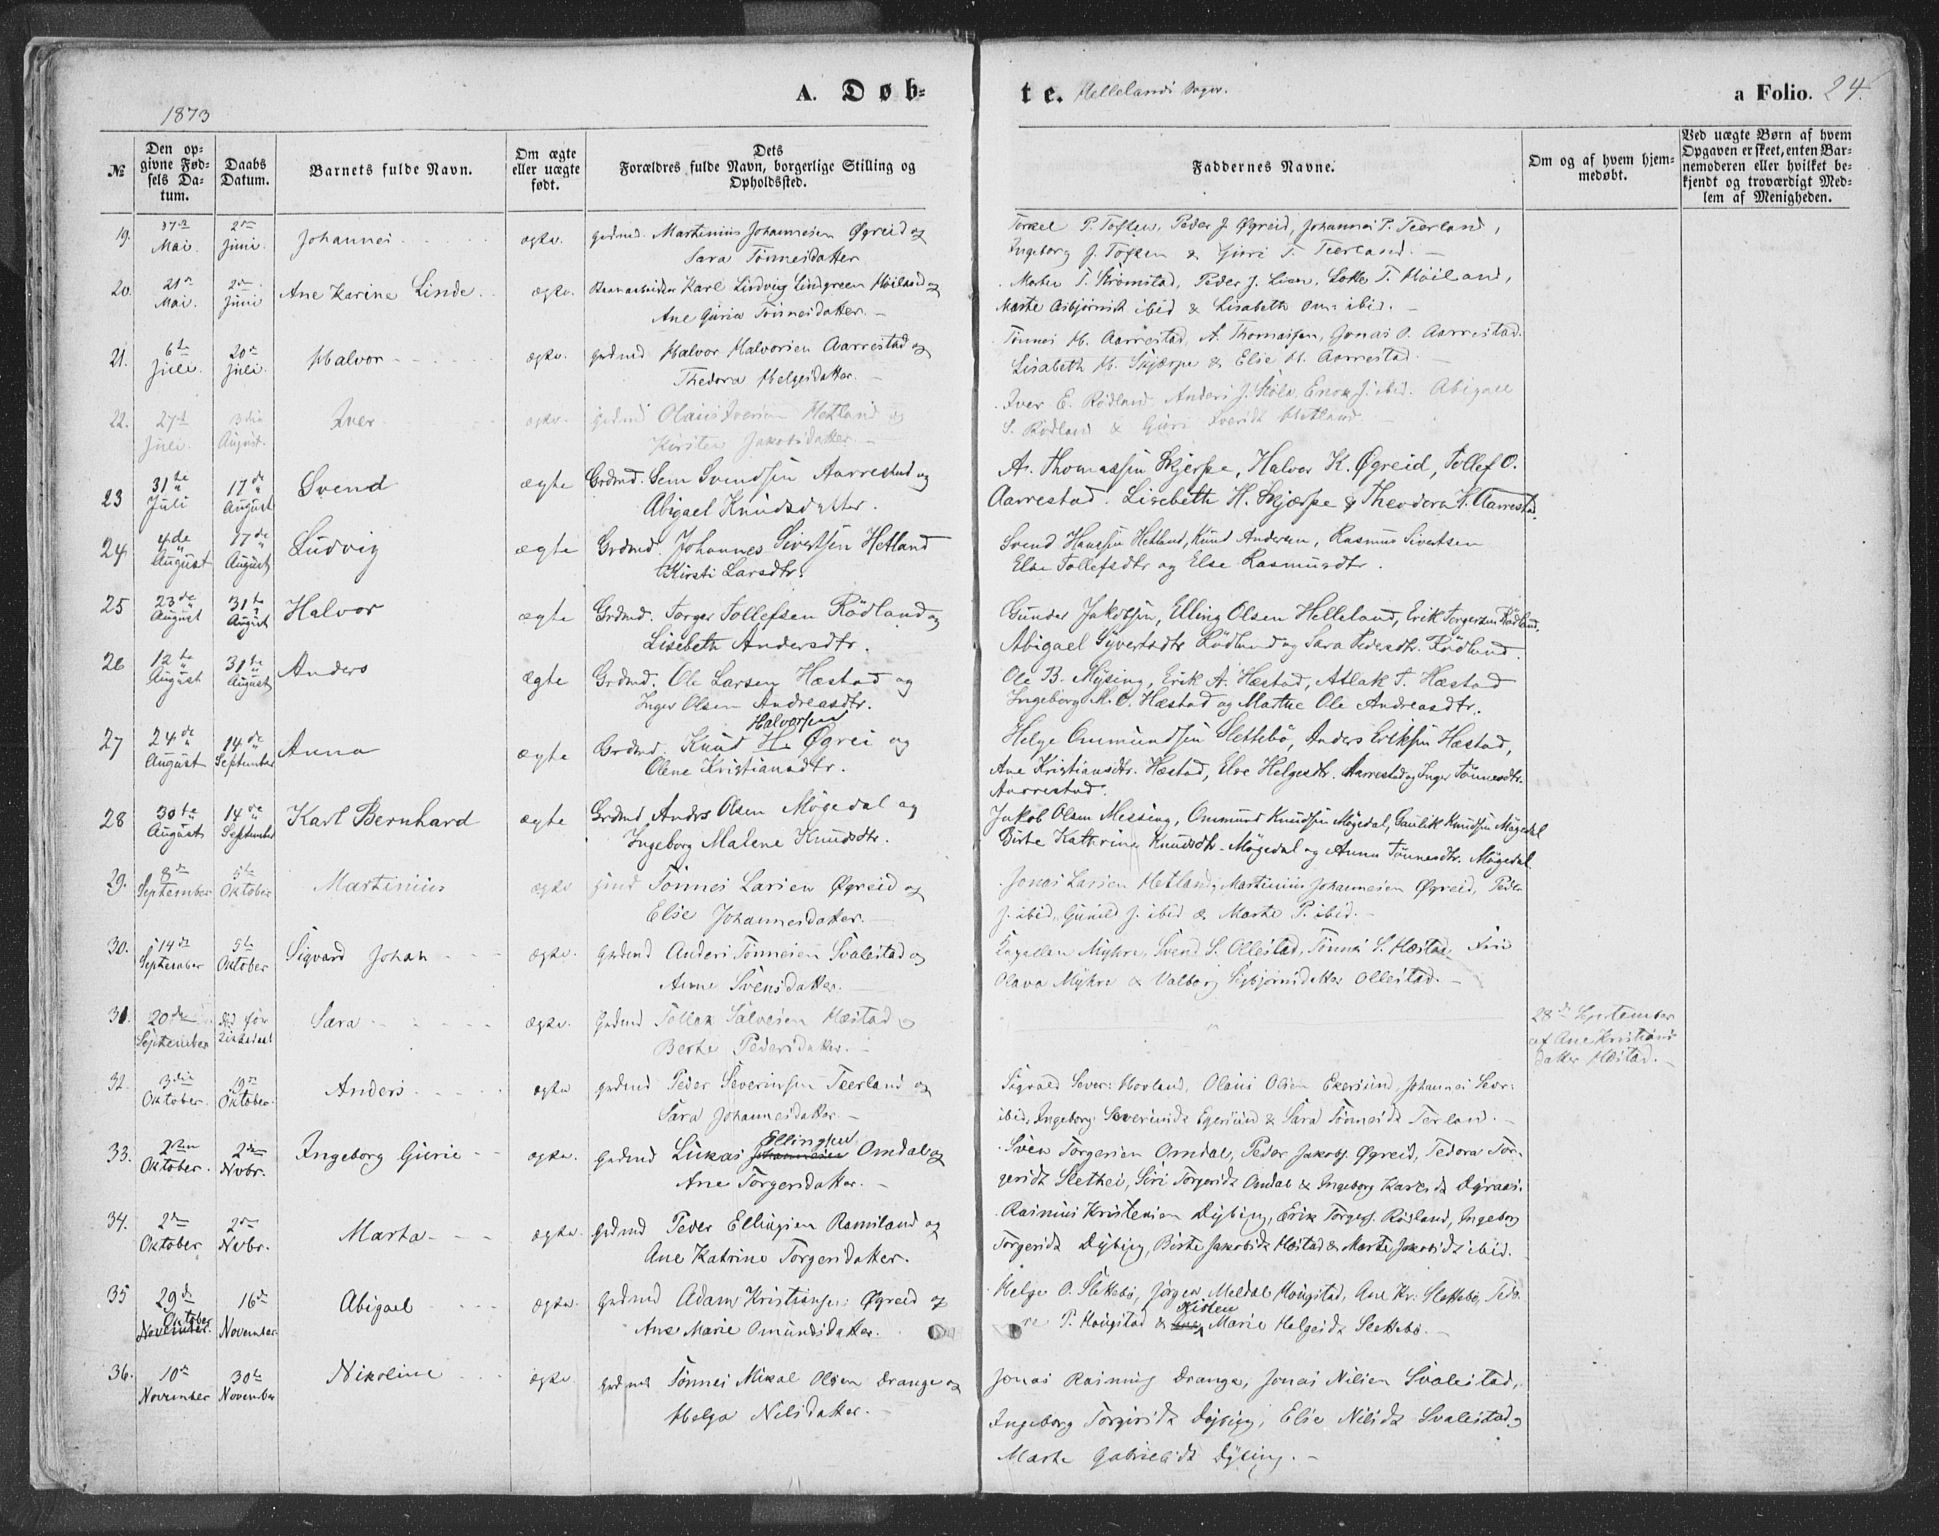 1873
A. Døb-
te. Hellelands Sogn.
a Folio. 24.
№
Den op-
givne Fød-
sels Da-
tum.
Daabs
Datum.
Barnets fulde Navn.
Om ægte
eller uægte
født.
Dets
Forældres fulde Navn, borgerlige Stilling og
Opholdssted.
Faddernes Navne.
Om og af hvem hjem-
medøbt.
Ved uægte Børn af hvem
Opgaven er skeet, enten Bar-
nemoderen eller hvilket be-
kjendt og troværdigt Med-
lem af Menigheden.
19. Mai. 2den Juni. Johannes ægte. Gudmd. Martinius Johannesen Øgreid og
Sara Tønnesdatter
Torkel P. Toften, Peder J. Øgreid, Johannes P. Teerland,
Ingeborg J. Toften & Guri T. Teerland.
20. 21de Mai. 2den Juni Ane Karine Linde ægte. Karl Ludvig Lindgreen Høiland og
Ane Guria Tønnesdatter.
T. Strømstad, Peder J. Lien, Lotte T. Høiland,
Marte Asbjørnsd. ibid & Lisabeth Om. ibid.
21. 6te Juli. 20de Juli. Halvor ægte. Gudmd Halvor Halvorsen Aarrestad og
Thedora Helgesdatter.
Tønnes H. Aarrestad, A. Thomassen, Jonas O. Aarrestad.
Lisabeth H. Skjærpe & Else H. Aarrestad.
22. 27de Juli. 3die August. Iver ægte. Gudmd Olaus Iversen Hetland og
Kirsten Jakobsdatter.
Iver E. Rødland, Anders J. Støle, Enok J. ibid. Abigael
S. Rødland & Guri Hetland.
23 31te Juli 17de August Svend ægte Grdmd. Sem Svendsen Aarrestad og
Abigael Knudsdatter.
A. Thomassen Skjerpe, Halvor K. Øgreid, Tollef O.
Aarrestad. Lisebeth H. Skjærpe & Theodora H. Aarrestad.
24 4de August 17de August Ludvig ægte Grdmd. Johannes Sivertsen Hetland
Kirsti Larsdtr.
Svend Hansen Hetland, Knud Andersen, Rasmus Sivertsen
Else Tollefsdtr og Else Rasmusdtr.
25 23de August 31te August Halvor ægte Grdmd. Torger Tollefsen Rødland og
Lisebeth Andersdtr.
Gunder Jakobsen, Elling Olsen Helleland, Erik Torgersen Rødland,
Abigael Syvertsdtr Rødland og Sara Pedersdtr. Rødland.
26 12te August 31te August Anders Ægte Grdmd. Ole Larsen Hæstad og
Inger Olsen Andreasdtr.
Ole B. Mysing, Erik A. Hæstad, Atlak T. Hæstad
Ingeborg M. O. Hæstad og Marthe Ole Andreasdtr.
27 24de August 14de September Anna ægte Grdmd. Knud H. Halvorsen Øgrei og
Olene Kristiansdtr.
Helge Ommundsen Slettebö, Anders Eriksen Hæstad,
Ane Kristiansdtr. Hæstad, Else Helgesdtr. Aarrestad og Inger Tønnesdtr.
Aarrestad.
28 30te August 14de September Karl Bernhard ægte Grdmd Andrs Olsen Møgedal og
Ingeborg Malene Knudsdtr.
Jakob Olsen Messing, Ommund Knudsen Møgedal, Gaulik Knudsen Møgedal
Birte Kathrine Knudsdtr. Møgedal og Anna Tønnesdtr. Møgedal
29. 8de September 5te Oktober Martinius ægte Tønnes Larsen Øgreid og
Else Johannesdatter.
Jonas Larsen Hetland, Martinius Johannesen Øgreid, Peder
J. ibid, Gunild J. ibid & Marte P. ibid.
30. 14de September 5te Oktober Sigvard Johan ægte. Gudmd Anders Tønnesen Svalestad og
Anne Svensdatter.
Myhre, Svend S. Ollestad, Tønnes S. Hæstad, Siri
Olava Myhre & Valborg Sigbjørnsdatter Ollestad.
31. 20de September død før Sara ægte. Gudmd Tollak Salvesen Hæstad og
Berte Pedersdatter.
28de September
af Ane Kristians
datter Hæstad.
32. 3die Oktober. 19de Oktober. Anders ægte Gudmd Peder Severinsen Teerland og
Sara Johannesdatter.
Sigvald Sever: Hovland, Olaus Olsen Ekersund, Johannes Sevr:
ibid, Ingeborg Severinsdt Egersund & Sara Tønnesdt Terland.
33. Oktober. 2den Novbr. Ingeborg Gurie ægte. Gudmd Lukas Johannesen Ellingsen Omdal og
Ane Torgersdatter.
Sven Torgersen Omdal, Peder Jakobs. Øgreid, Tedora Tor-
gersdt Slethei, Siri Torgersdt Omdal & Ingeborg
34. 2den Oktober 2den Novbr. Marta ægte. Gudmd Peder Ellingsen Ramsland og
Ane Katrine Torgersdatter.
Rasmus Kristensen Dybing, Erik Torgers. Rødland, Ingeborg
Torgersdt Dybing, Birte Jakobsdt Hæstad & Marte Jakobsdt ibid.
35 29de November. Oktober 16de November Abigael ægte. Gudmd Adam Kristiansen Øgreid og
Ane Marie Omundsdatter.
Helge O. Slettebø, Jørgen Meldal Hougstad, Ane Kr: Slettebø, Tedo
re P. Hougstad & Ane Kisten Marie Helgesdt Slettebø.
36. 10de November 30te November Nikoline ægte. Gudmd Tønnes Mikal Olsen Drange og
Helga Nilsdatter.
Jonas Rasming Drange, Jonas Nilsen Svalestad,
Ingeborg Torgersdt Dybing, Else Nilsdt Svalestad,
Marte Gabrielsdt Dybing.